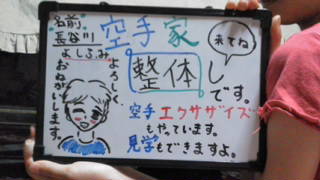 名前.
長谷川
よしふみ
よろしく
おねがいします。
空手家
来てね
整体し
です。
空手エクササイズ
もやっています。
見学もできますよ。